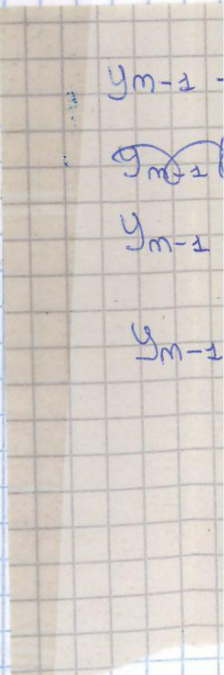 y_{m-1} -
y_{m-1}
y_{m-1}
y_{m-1}